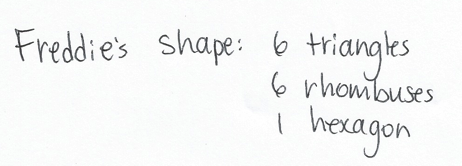 Freddie's shape: 6 triangles
6 rhombuses
1 hexagon